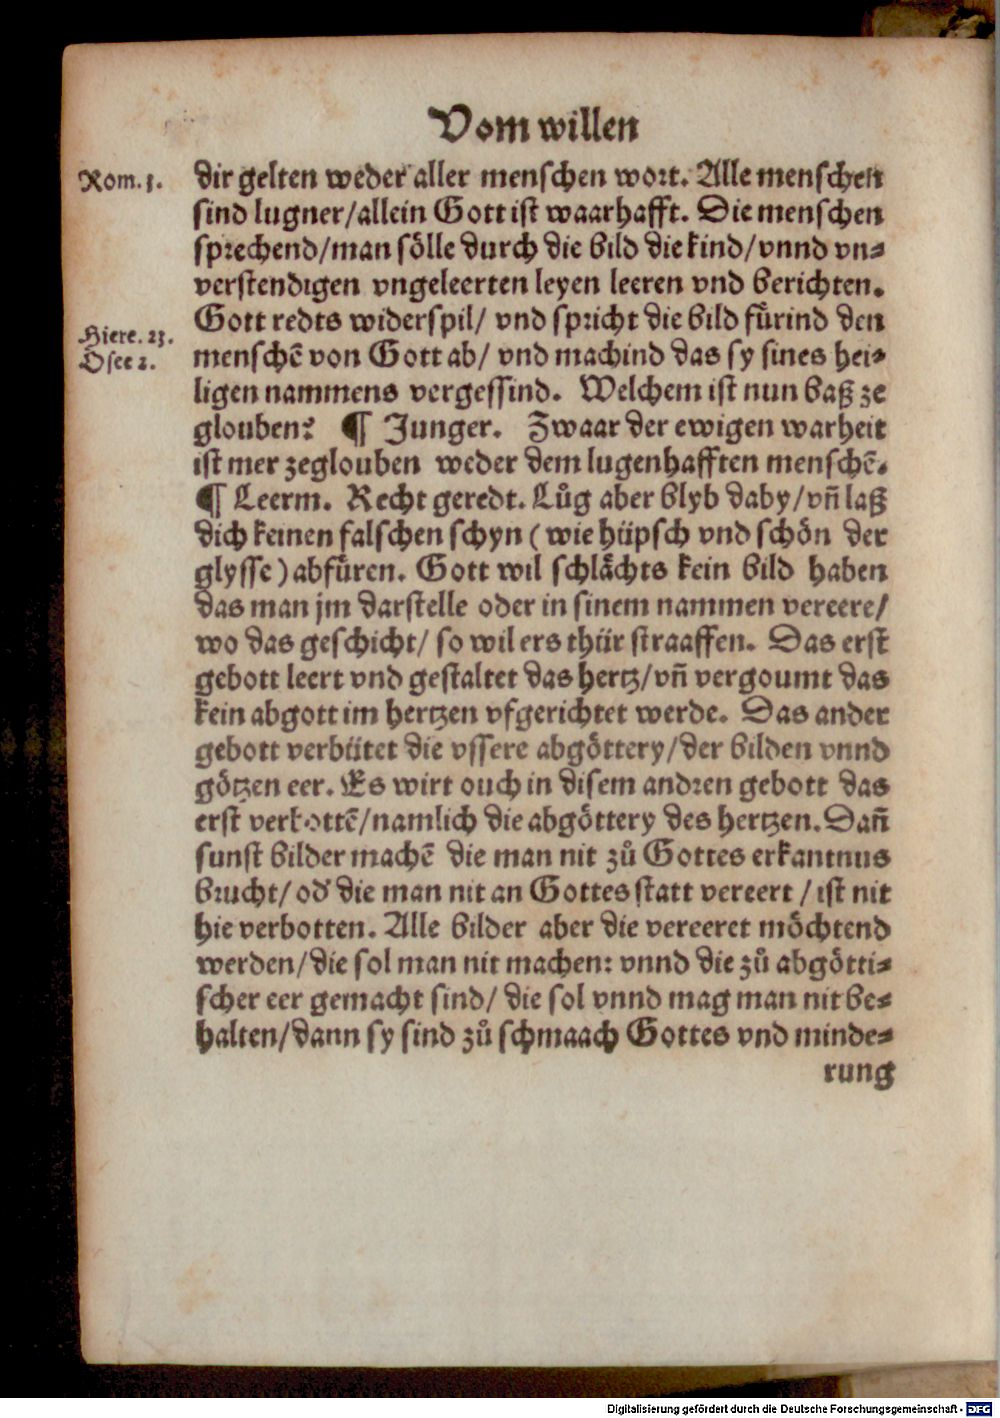 Vom willen
Rom. 3.
dir gelten weder aller menschen wort. Alle menschen
sind lugner/allein Gott ist waarhafft. Die menschen
sprechend/man sölle durch die bild die kind/vnnd vn⸗
verstendigen vngeleerten leyen leeren vnd berichten.
Gott redts widerspil/ vnd spricht die bild fuͤrind den
Hiere. 23.
Osee 2.
menschē von Gott ab/ vnd machind das sy sines hei⸗
ligen nammens vergessind. Welchem ist nun baß ze
glouben? ¶ Junger. Zwaar der ewigen warheit
ist mer zeglouben weder dem lugenhafften menschē.
¶ Leerm. Recht geredt. Luͦg aber blyb daby/vn̄ laß
dich keinen falschen schyn (wie hüpsch vnd schön der
glysse) abfuͤren. Gott wil schlächts kein bild haben
das man jm darstelle oder in sinem nammen vereere/
wo das geschicht/ so wil ers thür straaffen. Das erst
gebott leert vnd gestaltet das hertz/vn̄ vergoumt das
kein abgott im hertzen vfgerichtet werde. Das ander
gebott verbütet die vssere abgöttery/der bilden vnnd
götzen eer. Es wirt ouch in disem andren gebott das
erst verbottē/namlich die abgöttery des hertzen. Dan̄
sunst bilder machē die man nit zuͦ Gottes erkantnus
brucht/ od' die man nit an Gottes statt vereert /ist nit
hie verbotten. Alle bilder aber die vereeret möchtend
werden/die sol man nit machen: vnnd die zuͦ abgötti⸗
scher eer gemacht sind/ die sol vnnd mag man nit be⸗
halten/dann sy sind zuͦ schmaach Gottes vnd minde⸗
rung
Digitalisierung gefördert durch die Deutsche Forschungsgemeinschaft - DFG